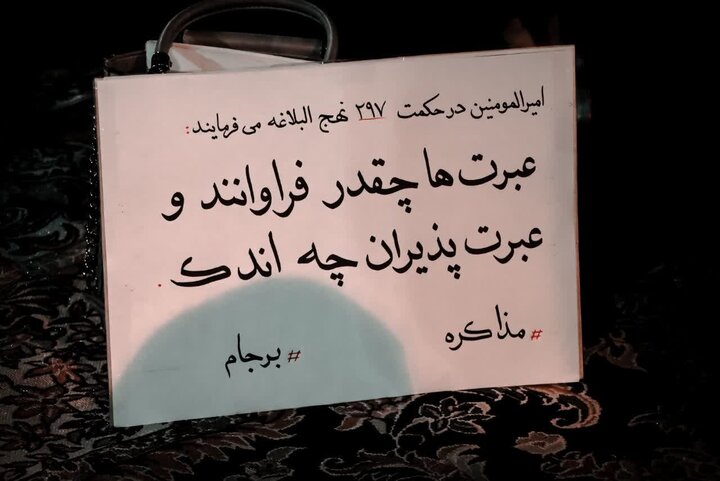 امیرالمومنین در حکمت ۲۹۷ نهج البلاغه می فرمایند:
عبرت ها چقدر فراوانند و
عبرت پذیران چه اندک.
#مذاکره
#برجام